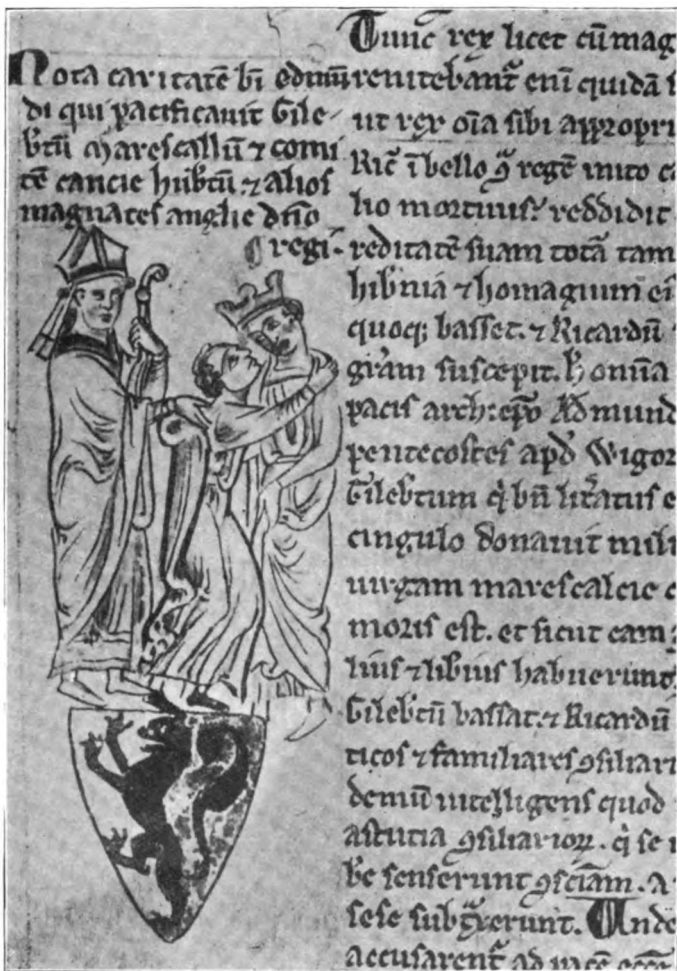 Nota caritatē bi edmū
di qui pacificauit Gile
btū marescallū ⁊ comi
tē cancie hubtū ⁊ alios
magnates anglie dño
regi.
Tunc rex licet cū mag
renitebant enī quidā
ut rex oīa sibi appropri
Ric ī bello ꝯ regē inito
lio mortuus reddidit
reditatē suam totā tam
hibniā ⁊ homagium ei
quoq; basset. ⁊ Ricardū
gram suscepit. h omīa
pacis arch: epo Admund
pentecostes apd Wigor
Gilebtum q bn litatus e
cingulo donauit mili
uirgam marescalcie c
moris est. et sicut eam
lius ⁊ libius habuerunt
Gilebtū bassat. ⁊ Ricardū
ticos ⁊ familiares ꝯsiliari
demū intelligens quod
astucia ꝯsiliarioꝝ. q se
be senserunt ꝯsciam. a
sese subtxerunt. Unde
accusarent ad pacē